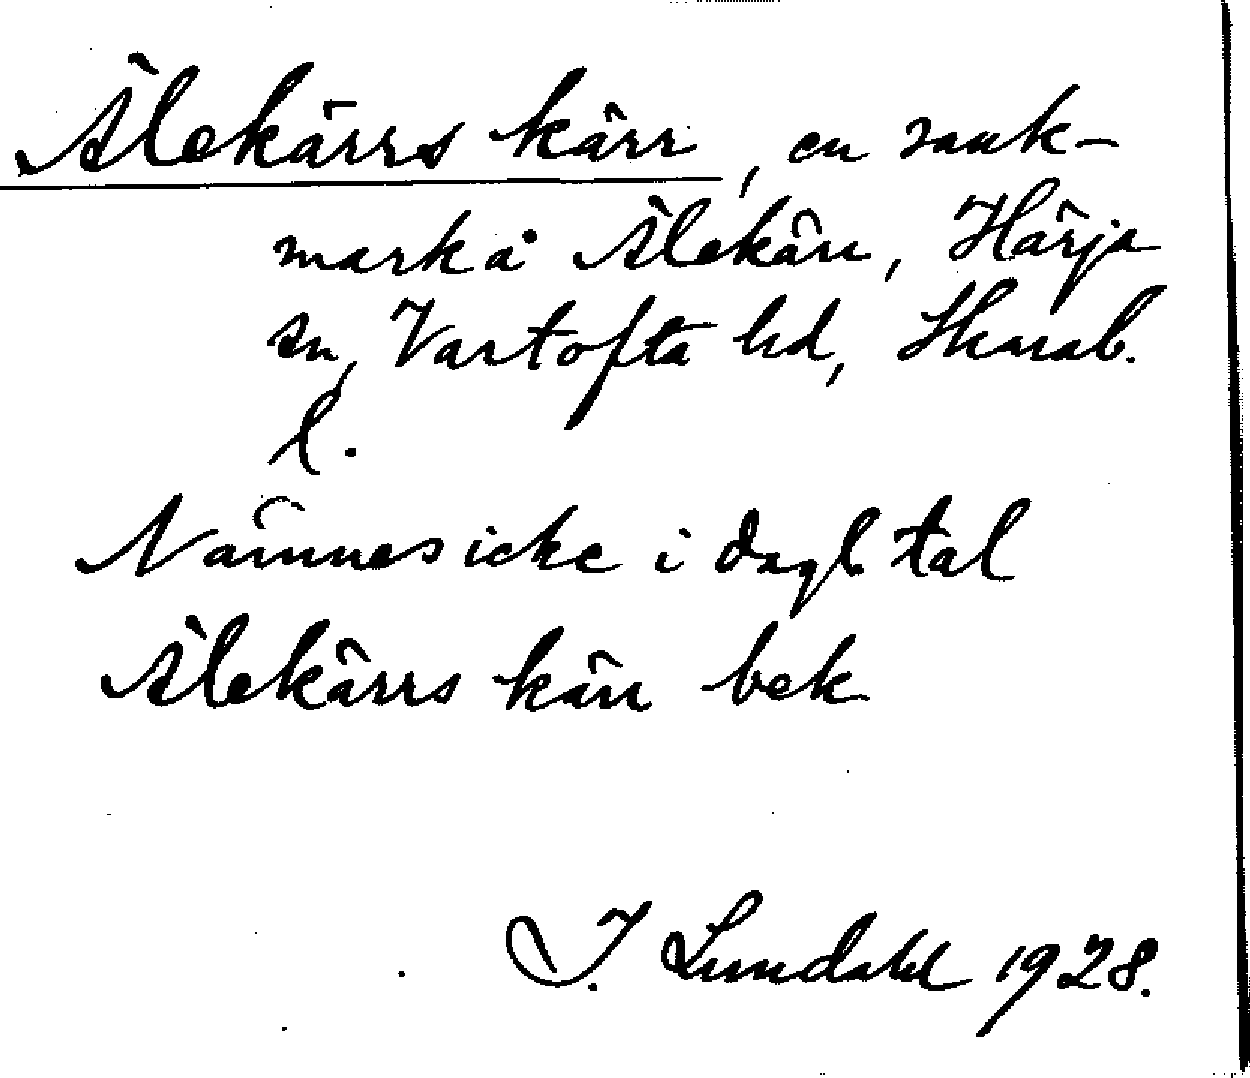 Älekärrs kärr, en sank-
mark å Älekärr, Härja
sn, Vartofta hd, Skarab.
l.
Nämnes icke i dagl tal
Älekärrs kärr bek
I. Lundahl 1928.